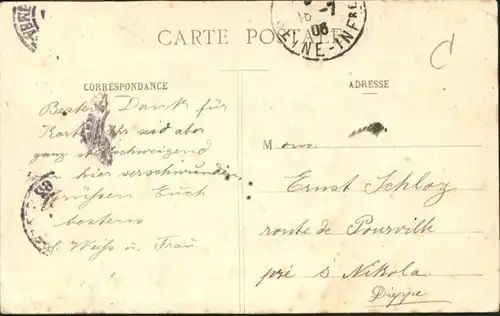 CARTE POSTALE
SEINE-INFRE
16 -7
06
C
CORRESPONDANCE
Besten Dank für
Karte. Ihr seid aber
ganz stillschweigend
von hier verschwunden.
Grüssen Euch
bestens
Weiss u. Frau
ADRESSE
M ons.
Ernst Schloz
route de Pourville
pré s Nikola
Dieppe